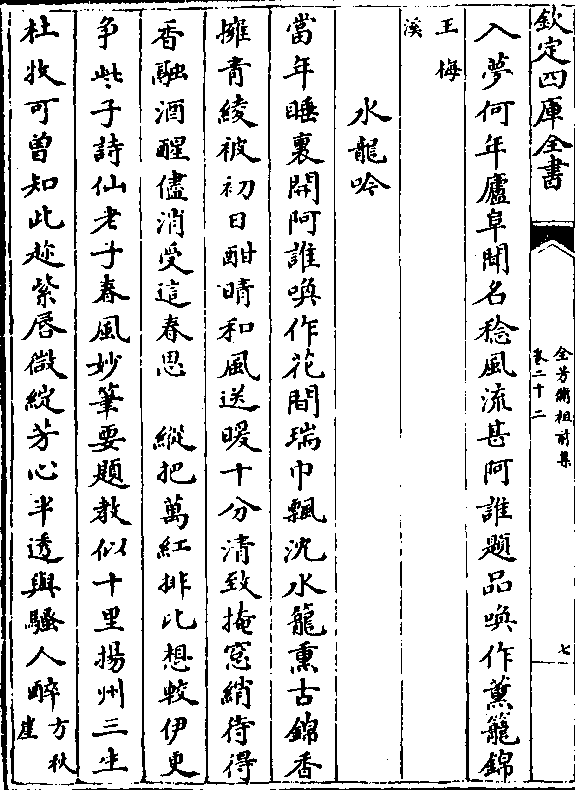 欽定四庫全書
全芳備祖前集
卷二十二
七
入夢何年廬阜聞名稔風流甚阿誰題品喚作薰籠錦
王梅
溪
水龍吟
當年睡裏開阿誰喚作花間瑞巾飄沈水籠熏古錦香
擁青綾被初日酣晴和風送暖十分清致掩窓綃待得
香融酒醒儘消受這春思　縱把萬紅排比想較伊更
争些子詩仙老手春風妙筆要題教似十里揚州三生
杜牧可曾知此趂紫唇微綻芳心半透與騷人醉方秋
崖